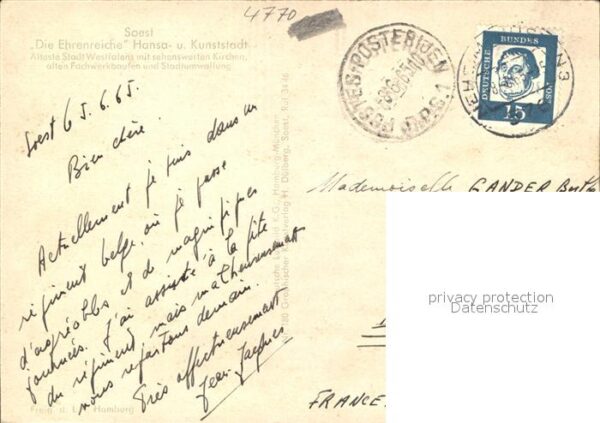 4770
Soest
"Die Ehrenreiche" Hansa- u. Kunststadt
Älteste Stadt Westfalens mit sehenswerten Kirchen,
alten Fachwerkbauten und Stadtumwallung
POSTES-POSTERIJEN
B.P.S. 1
DEUTSCHE BUNDESPOST
15
Soest 6 5.6.65.
Bien chère.
Actuellement je suis dans un
régiment belge, où je passe
d'agréables et de magnifiques
journées. J'ai assisté à la fête
du régiment, mais malheureusement
nous repartons demain.
Très affectueusement
Jean Jacques
Mademoiselle GANDER Berth
FRANCE.
privacy protection
Datenschutz
Hamburg